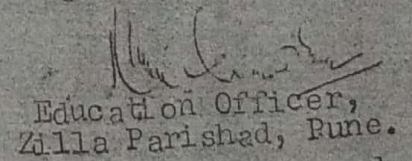 Education Officer,
Zilla Parishad, Pune.